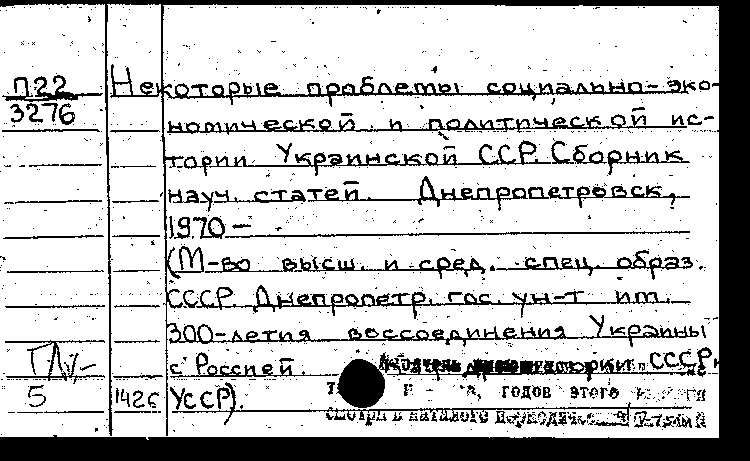 П22
3276
Некоторые проблемы социально-эко-
номической и политической ис-
тории Украинской ССР. Сборник
науч. статей. Днепропетровск,
1970 —
(М-во высш. и сред. спец. образ.
СССР. Днепропетр. гос. ун-т им.
300-летия воссоединения Украины
с Россией. СССР и
УССР).
5
142
годов этого
смотри в каталоге